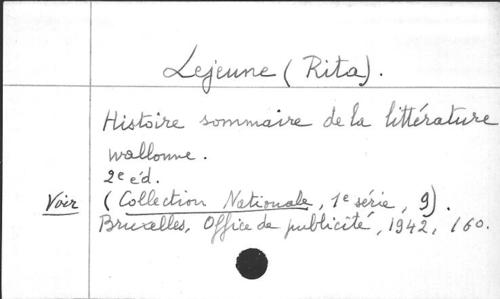 Lejeune (Rita).
Histoire sommaire de la littérature
wallonne.
2e éd.
Voir (Collection Nationale, 1e série, 9).
Bruxelles, Office de publicité, 1942, 160.